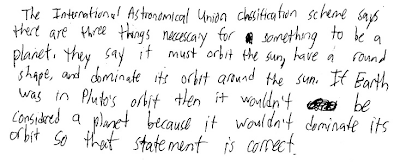 The International Astronomical Union classification scheme says
there are three things neccecary for something to be a
planet. They say it must orbit the sun, have a round
shape, and dominate its orbit around the sun. If Earth
was in Pluto's orbit then it wouldn't be
considered a planet because it wouldn't dominate its
orbit so that statement is correct.